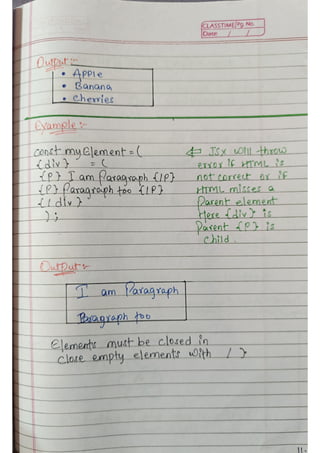 CLASSTIME/Pg. No.
Date / /
Output:-
• Apple
• Banana
• Cherries
Example:-
const myElement = (
{div} = (
{P} I am Paragraph {/P}
{P} Paragraph too {/P}
{/div}
);
⇐ JSX will throw
error if HTML is
not correct or if
HTML misses a
Parent element
Here {div} is
Parent {P} is
child.
Output:-
I am Paragraph
Paragraph too
Elements must be closed in
close empty elements with / }
11-